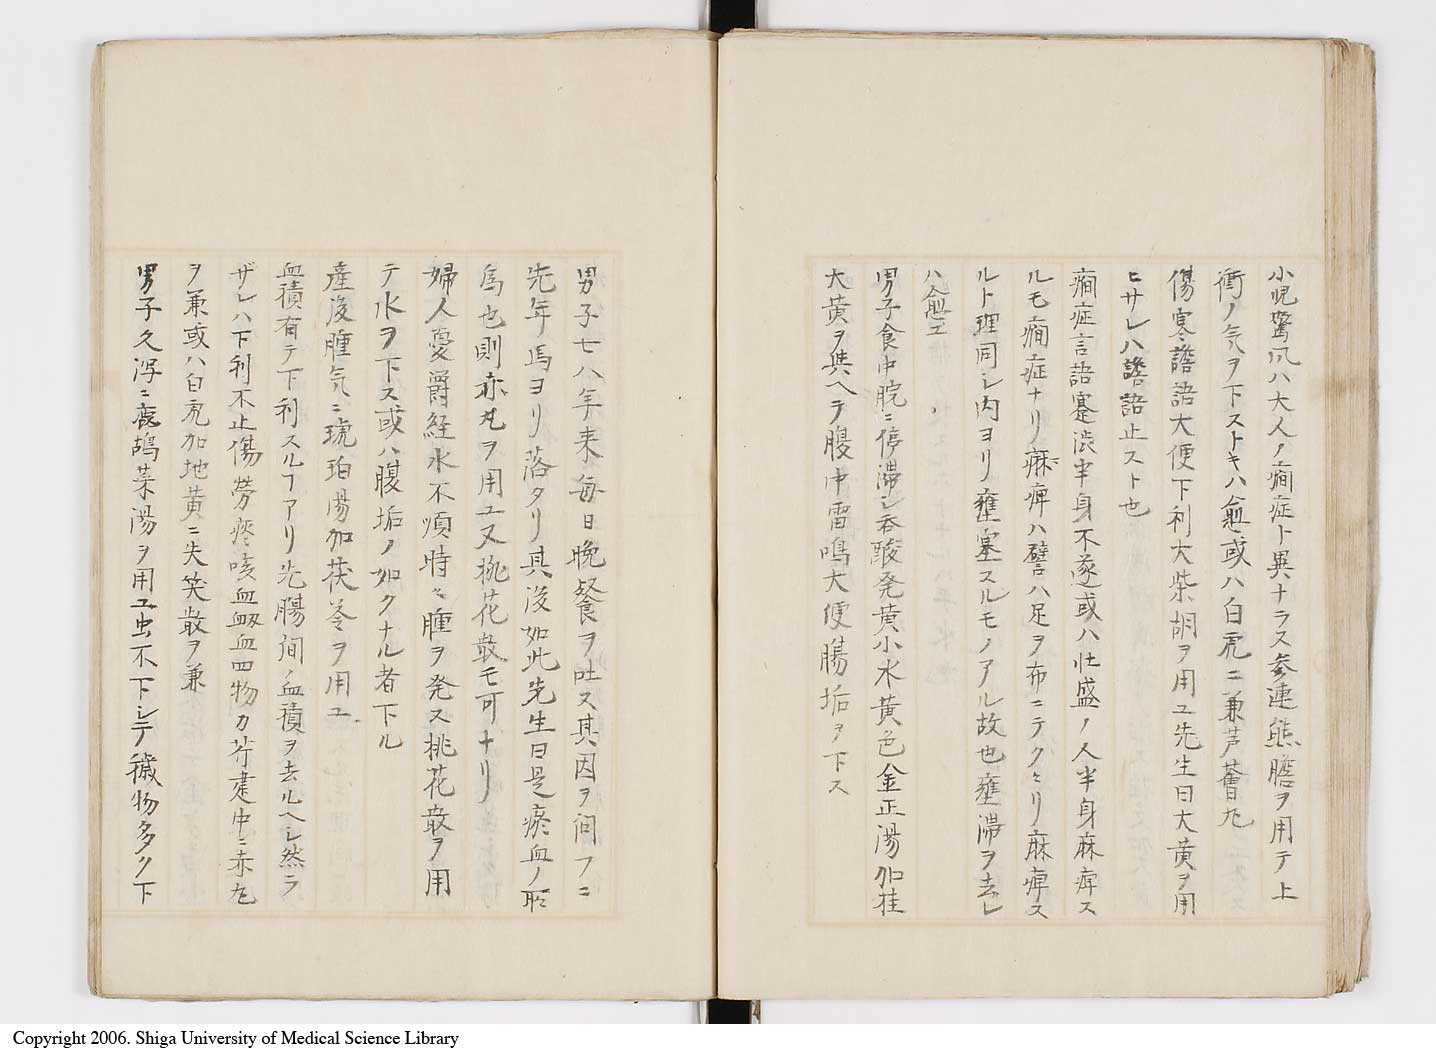 小児驚風ハ大人ノ癇症ト異ナラス参連熊膽ヲ用テ上
衝ノ気ヲ下ストキハ愈或ハ白虎ニ兼芦薈丸
傷寒譫語大便下利大柴胡ヲ用ユ先生曰大黄ヲ用
ヒサレハ譫語止スト也
癇症言語蹇渋半身不遂或ハ壮盛ノ人半身麻痺ス
ルモ癇症ナリ麻痺ハ譬ハ足ヲ布ニテクヽリ麻痺ス
ルト理同シ内ヨリ壅塞スルモノアル故也壅滞ヲ去レ
ハ愈ユ
男子食中脘ニ停滞シ呑酸発黄小水黄色金正湯加桂
大黄ヲ與ヘテ腹中雷鳴大便腸垢ヲ下ス
男子七八年来毎日晩餐ヲ吐又其因ヲ問フニ
先年馬ヨリ落タリ其後如此先生曰是瘀血ノ所
為也則赤丸ヲ用ユ又桃花散モ可ナリ
婦人憂欝経水不順時々腫ヲ発ス桃花散ヲ用
テ水ヲ下ス或ハ腹垢ノ如クナル者下ル
産後腫気ニ琥珀湯加茯苓ヲ用ユ
血積有テ下利スルヿアリ先腸間ノ血積ヲ去ルヘシ然ラ
ザレハ下利不止傷労痰咳血衂血四物カ芹建中ニ赤丸
ヲ兼或ハ白虎加地黄ニ失笑散ヲ兼
男子久瀉ニ鹿鴣菜湯ヲ用ユ虫不下シテ穢物多ク下
Copyright 2006. Shiga University of Medical Science Library